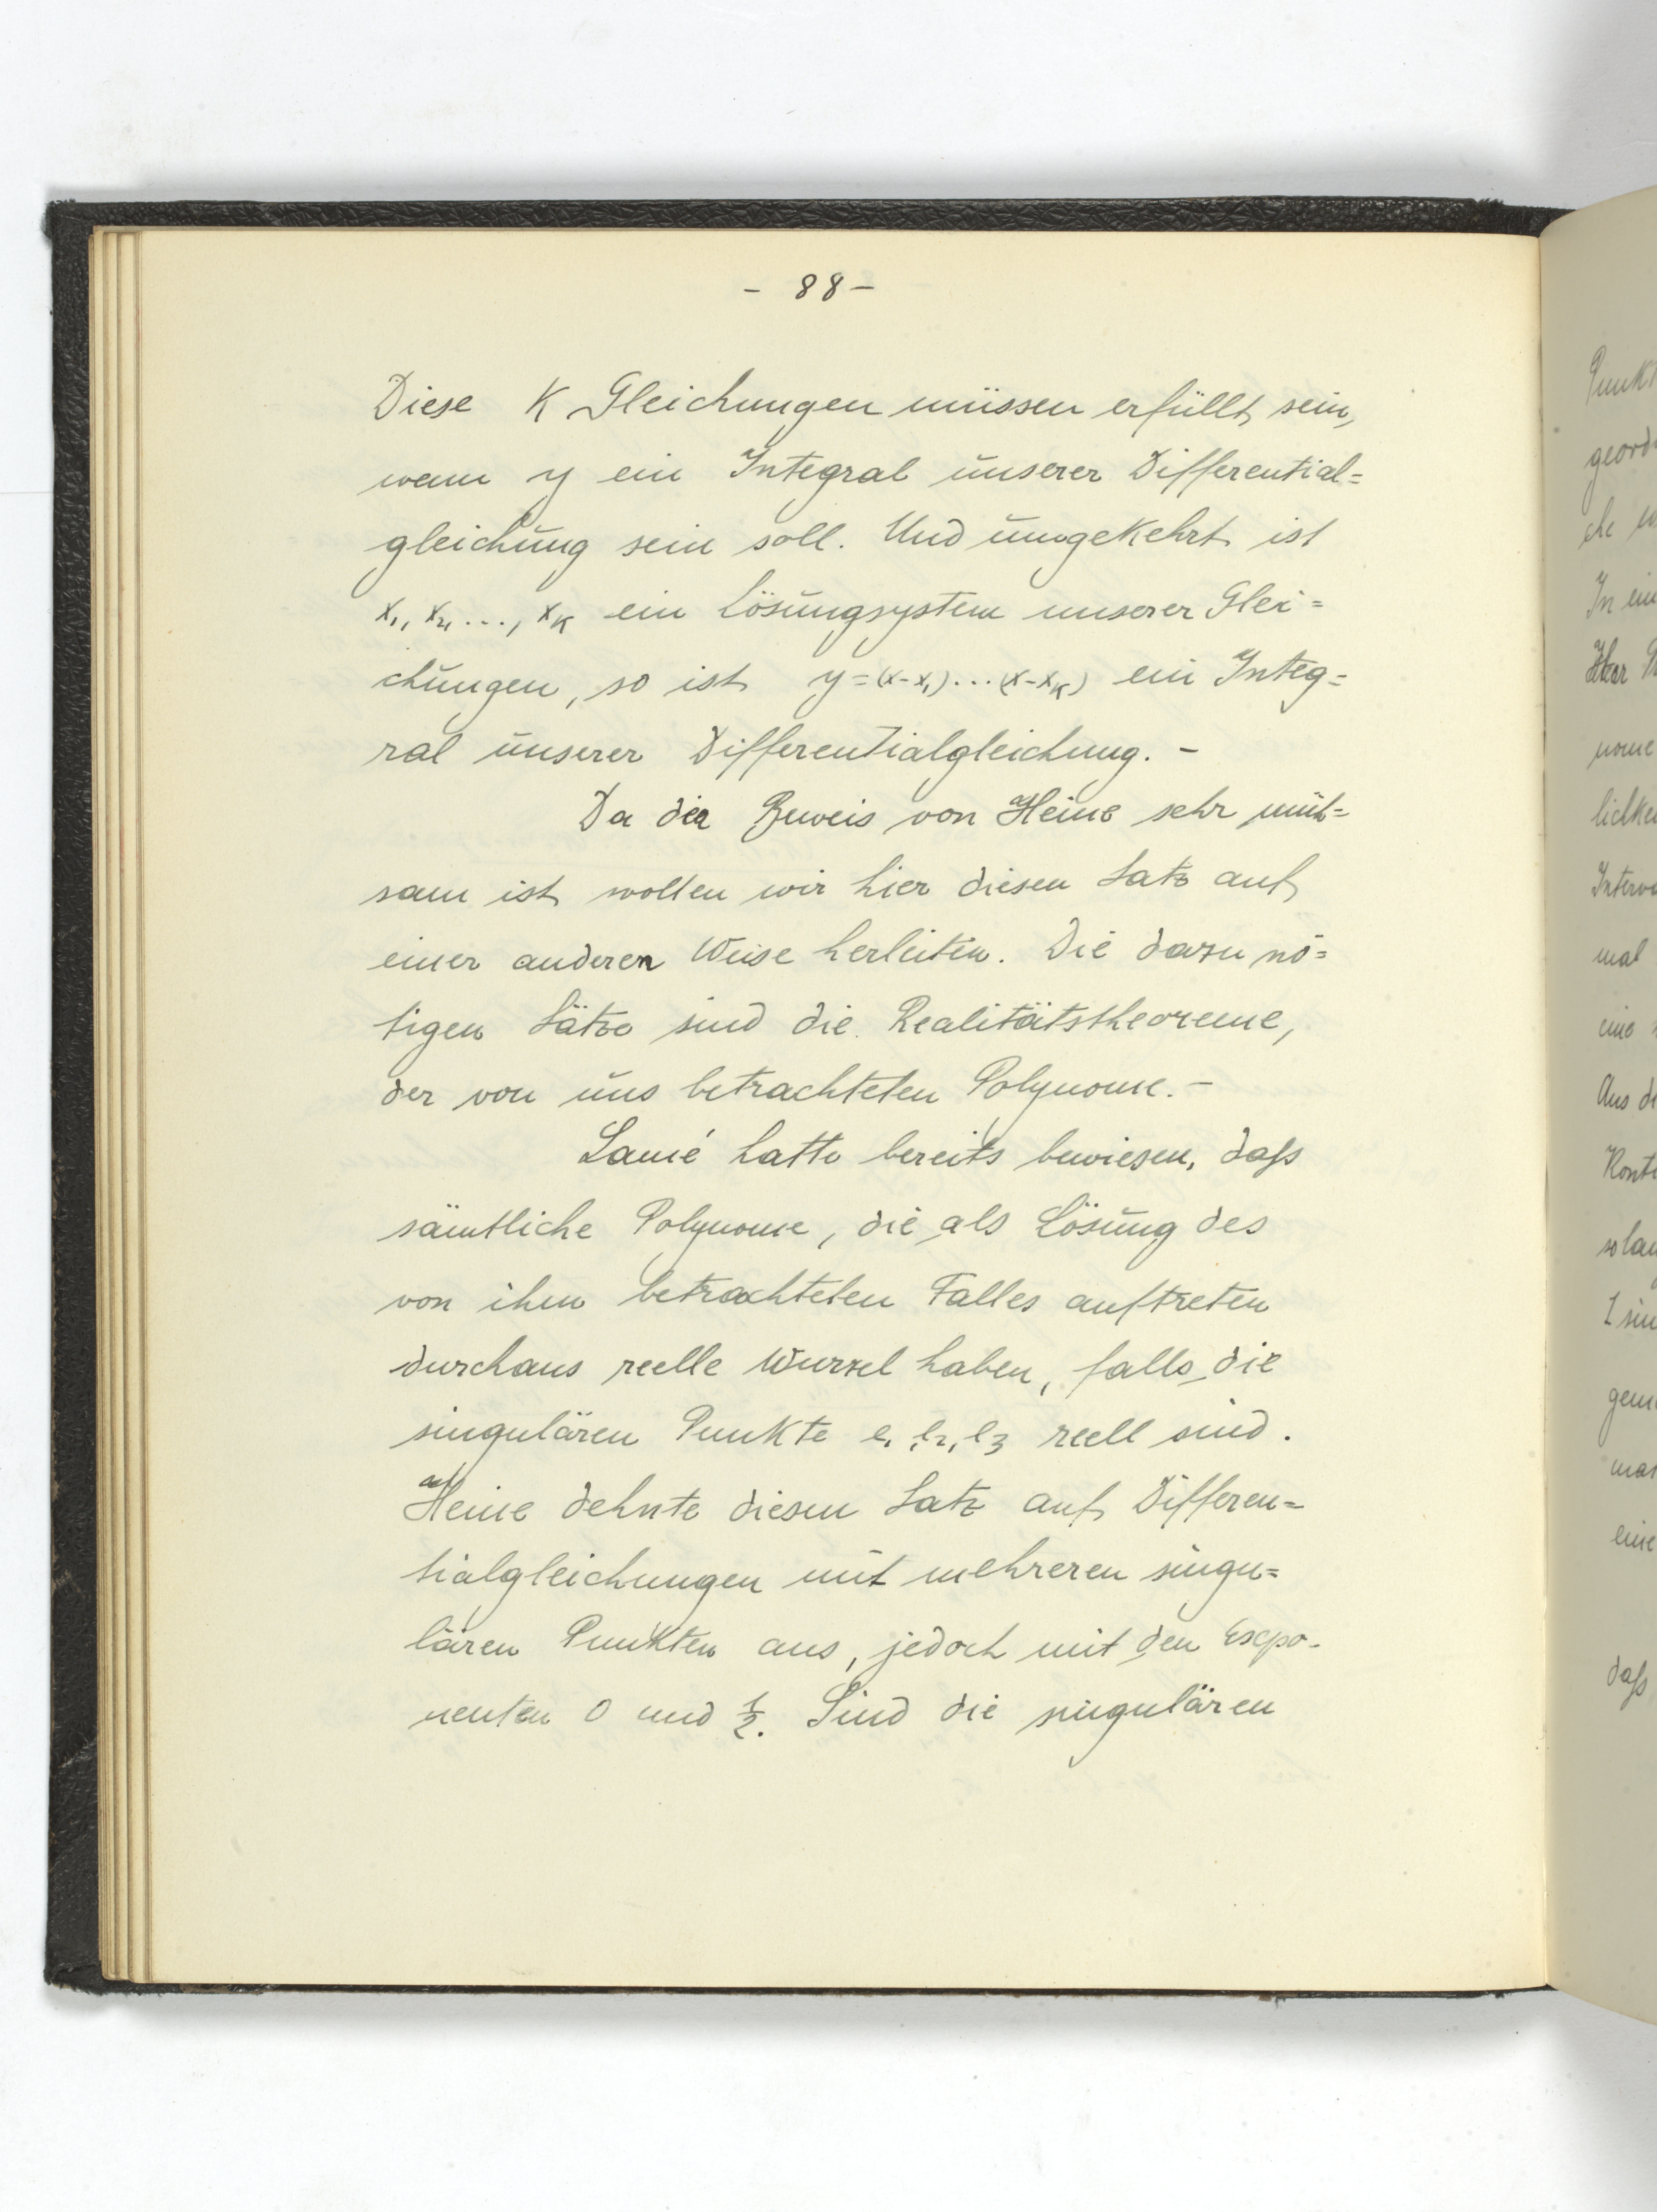 - 88 -
Diese K Gleichungen müssen erfüllt sein,
wenn y ein Integral unserer Differential=
gleichung sein soll. Und umgekehrt ist
x₁, x₂, ..., xK ein Lösungsystem unserer Glei=
chungen, so ist y=(x-x₁)...(x-xK) ein Integ=
ral unserer Differentialgleichung. -
Da der Beweis von Heine sehr müh=
sam ist wollen wir hier diesen Satz auf
einer anderen Weise herleiten. Die dazu nö=
tigen Sätze sind die Realitätstheoreme,
der von uns betrachteten Polynome. -
Lamé hatte bereits bewiesen, daſs
sämtliche Polynome, die als Lösung des
von ihm betrachteten Falles auftreten
durchaus reelle Wurzel haben, falls die
singulären Punkte e₁, e₂, e₃ reell sind.
Heine dehnte diesen Satz auf Differen=
tialgleichungen mit mehreren singu=
lären Punkten aus, jedoch mit den Expo-
nenten 0 und ½. Sind die singulären